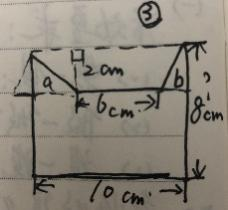 ③
2cm
a
b
6cm
8cm
10cm